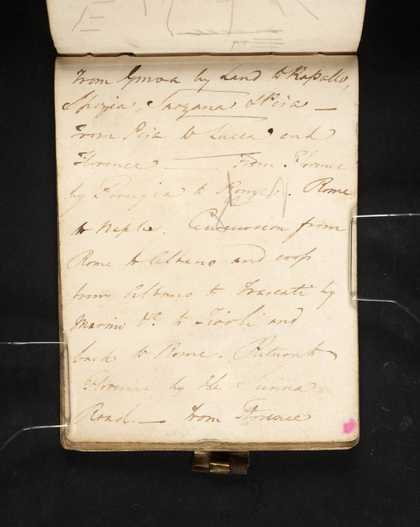 From Genoa by Land to Rapallo,
Spezia, Sarzana & Pisa —
From Pisa to Lucca and
Florence — From Florence
by Perugia to Rome. Rome
to Naples. Excursion from
Rome to Albano and
from Albano to Frascati by
Marino to Tivoli and
back to Rome. Return to
Florence by the Sienna
Road. — From Florence